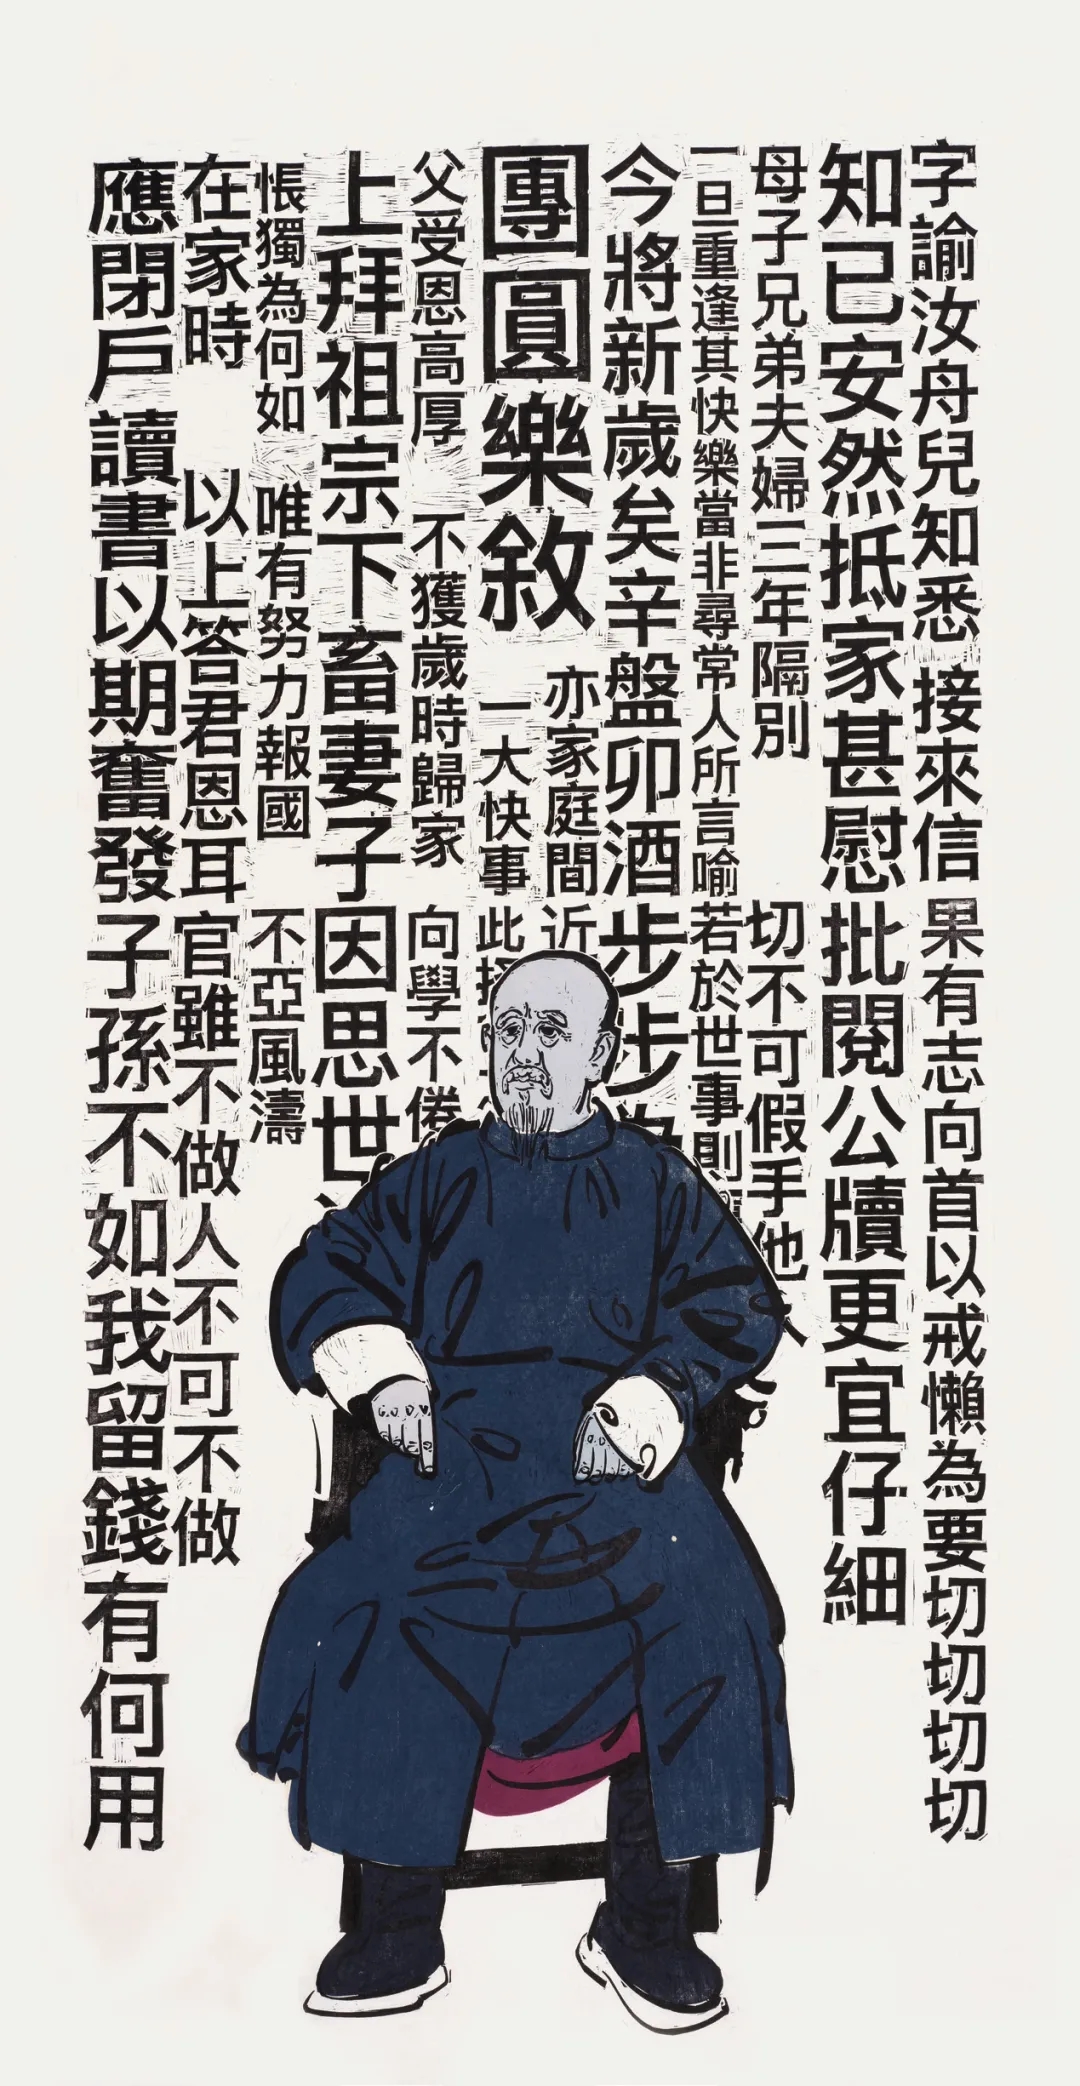 字諭汝舟兒知悉 接來信 果有志向首以戒懶為要切切切切
知已安然抵家甚慰批閱公牘更宜仔細
母子兄弟夫婦三年隔別 切不可假手他人
一旦重逢其快樂當非尋常人所言喻若於世事則
今將新歲矣辛盤卯酒步步
團圓樂敘
亦家庭間近
一大快事此
父受恩高厚 不獲歲時歸家 向學不倦
上拜祖宗下畜妻子因思世
悵獨為何如 唯有努力報國 不亞風濤
在家時 以上答君恩耳 官雖不做人不可不做
應閉戶讀書以期奮發子孫不如我留錢有何用